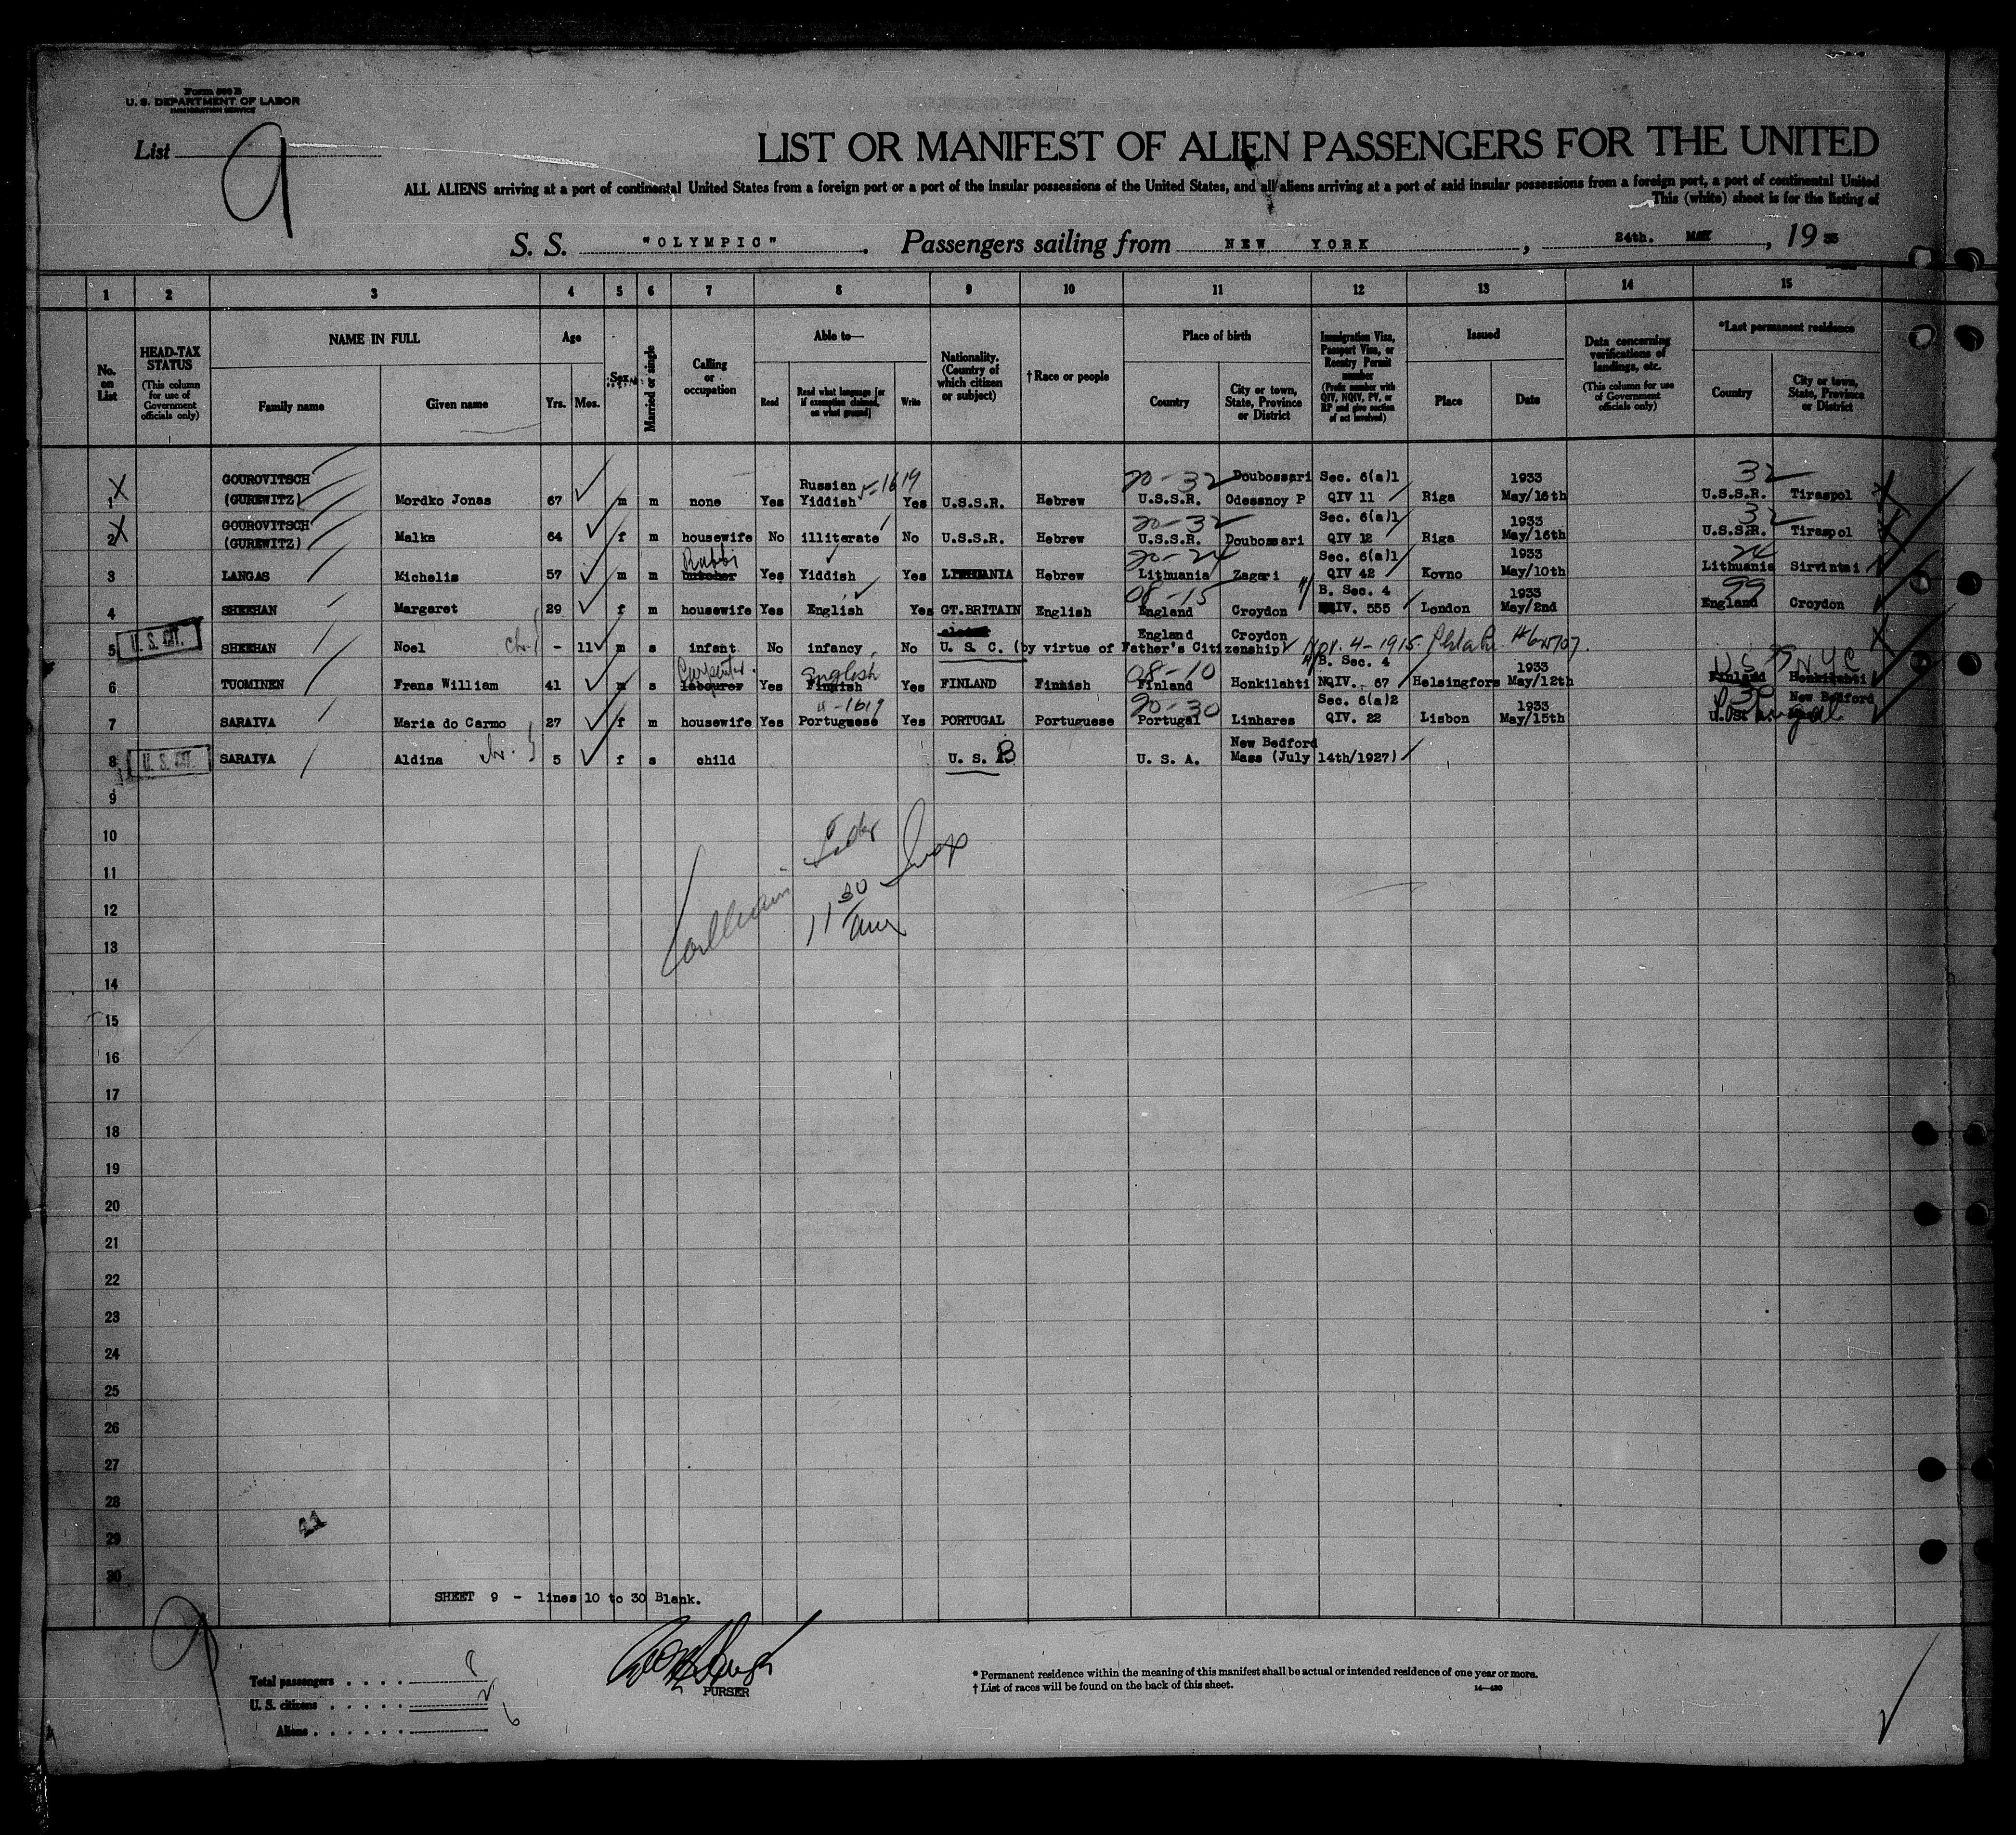 Form 500 B
U. S. DEPARTMENT OF LABOR
IMMIGRATION SERVICE
List 9
LIST OR MANIFEST OF ALIEN PASSENGERS FOR THE UNITED
ALL ALIENS arriving at a port of continental United States from a foreign port or a port of the insular possessions of the United States, and all aliens arriving at a port of said insular possessions from a foreign port, a port of continental United
This (white) sheet is for the listing of
S. S. "OLYMPIC". Passengers sailing from NEW YORK, 24th. MAY, 19 33
1 2 3 4 5 6 7 8 9 10 11 12 13 14 15
No. on List
HEAD-TAX STATUS (This column for use of Government officials only)
NAME IN FULL
Family name Given name
Age
Yrs. Mos.
Sex
Married or single
Calling or occupation
Able to—
Read Read what language [or if exemption claimed, on what ground] Write
Nationality. (Country of which citizen or subject)
†Race or people
Place of birth
Country City or town, State, Province or District
Immigration Visa, Passport Visa, or Reentry Permit number (Prefix number with QIV, NQIV, PV, or RP and give section of act involved)
Issued
Place Date
Data concerning verifications of landings, etc. (This column for use of Government officials only)
*Last permanent residence
Country City or town, State, Province or District
GOUROVITSCH Russian 5-1619 20-32 Doubossari Sec. 6(a)1 1933 32
1 X (GUREWITZ) Mordko Jonas 67 m m none Yes Yiddish Yes U.S.S.R. Hebrew U.S.S.R. Odessnoy P QIV 11 Riga May/16th U.S.S.R. Tiraspol
GOUROVITSCH 20-32 Sec. 6(a)1 1933 32
2 X (GUREWITZ) Malka 64 f m housewife No illiterate No U.S.S.R. Hebrew U.S.S.R. Doubossari QIV 12 Riga May/16th U.S.S.R. Tiraspol
Rabbi 20-24 Sec. 6(a)1 1933 24
3 LANGAS Michelis 57 m m butcher Yes Yiddish Yes LITHUANIA Hebrew Lithuania Zagari QIV 42 Kovno May/10th Lithuania Sirvintai
08-15 B. Sec. 4 1933 99
4 SHEEHAN Margaret 29 f m housewife Yes English Yes GT.BRITAIN English England Croydon IV. 555 London May/2nd England Croydon
England Croydon
5 U. S. CIT. SHEEHAN Noel - 11 m s infant No infancy No U. S. C. (by virtue of Father's Citizenship) Nov. 4-1915
Carpenter English 08-10 B. Sec. 4 1933 U.S. 99 N.Y.C
6 TUOMINEN Frans William 41 m s labourer Yes Finnish Yes FINLAND Finnish Finland Honkilahti NQIV. 67 Helsingfors May/12th Finland Honkilahti
-1619 20-30 Sec. 6(a)2 1933 New Bedford
7 SARAIVA Maria do Carmo 27 f m housewife Yes Portuguese Yes PORTUGAL Portuguese Portugal Linhares QIV. 22 Lisbon May/15th Portugal
New Bedford
8 U. S. CIT. SARAIVA Aldina 5 f s child U. S. B U. S. A. Mass (July 14th/1927)
9
10
11
12
13
14
15
16
17
18
19
20
21
22
23
24
25
26
27
28
29
30
11 30
SHEET 9 - lines 10 to 30 Blank.
9
PURSER
Total passengers 8
U. S. citizens 2
Aliens 6
* Permanent residence within the meaning of this manifest shall be actual or intended residence of one year or more.
† List of races will be found on the back of this sheet.